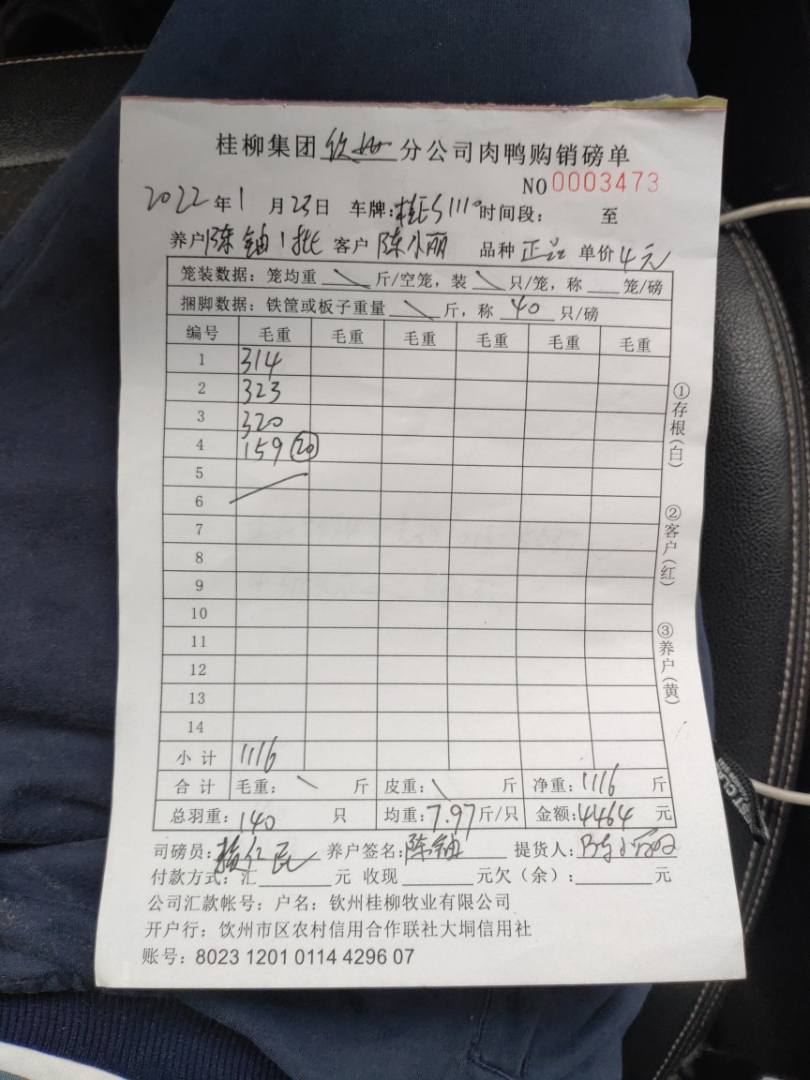 桂柳集团钦州分公司肉鸭购销磅单
NO 0003473
2022年1月23日 车牌: 时间段: 至
养户陈铀1批 客户陈小丽 品种正品 单价4元
笼装数据: 笼均重 \ 斤/空笼, 装 \ 只/笼, 称 笼/磅
捆脚数据: 铁筐或板子重量 \ 斤, 称 40 只/磅
编号 毛重 毛重 毛重 毛重 毛重 毛重
1 314
2 323
3 320
4 159 (20)
5
6
7
8
9
10
11
12
13
14
小计 1116
合计 毛重: \ 斤 皮重: \ 斤 净重: 1116 斤
总羽重: 140 只 均重: 7.97斤/只 金额: 4464 元
司磅员: 养户签名: 陈铀 提货人: 陈小丽
付款方式: 汇 元 收现 元欠(余): 元
公司汇款帐号: 户名: 钦州桂柳牧业有限公司
开户行: 饮州市区农村信用合作联社大垌信用社
账号: 8023 1201 0114 4296 07
①存根(白)
②客户(红)
③养户(黄)